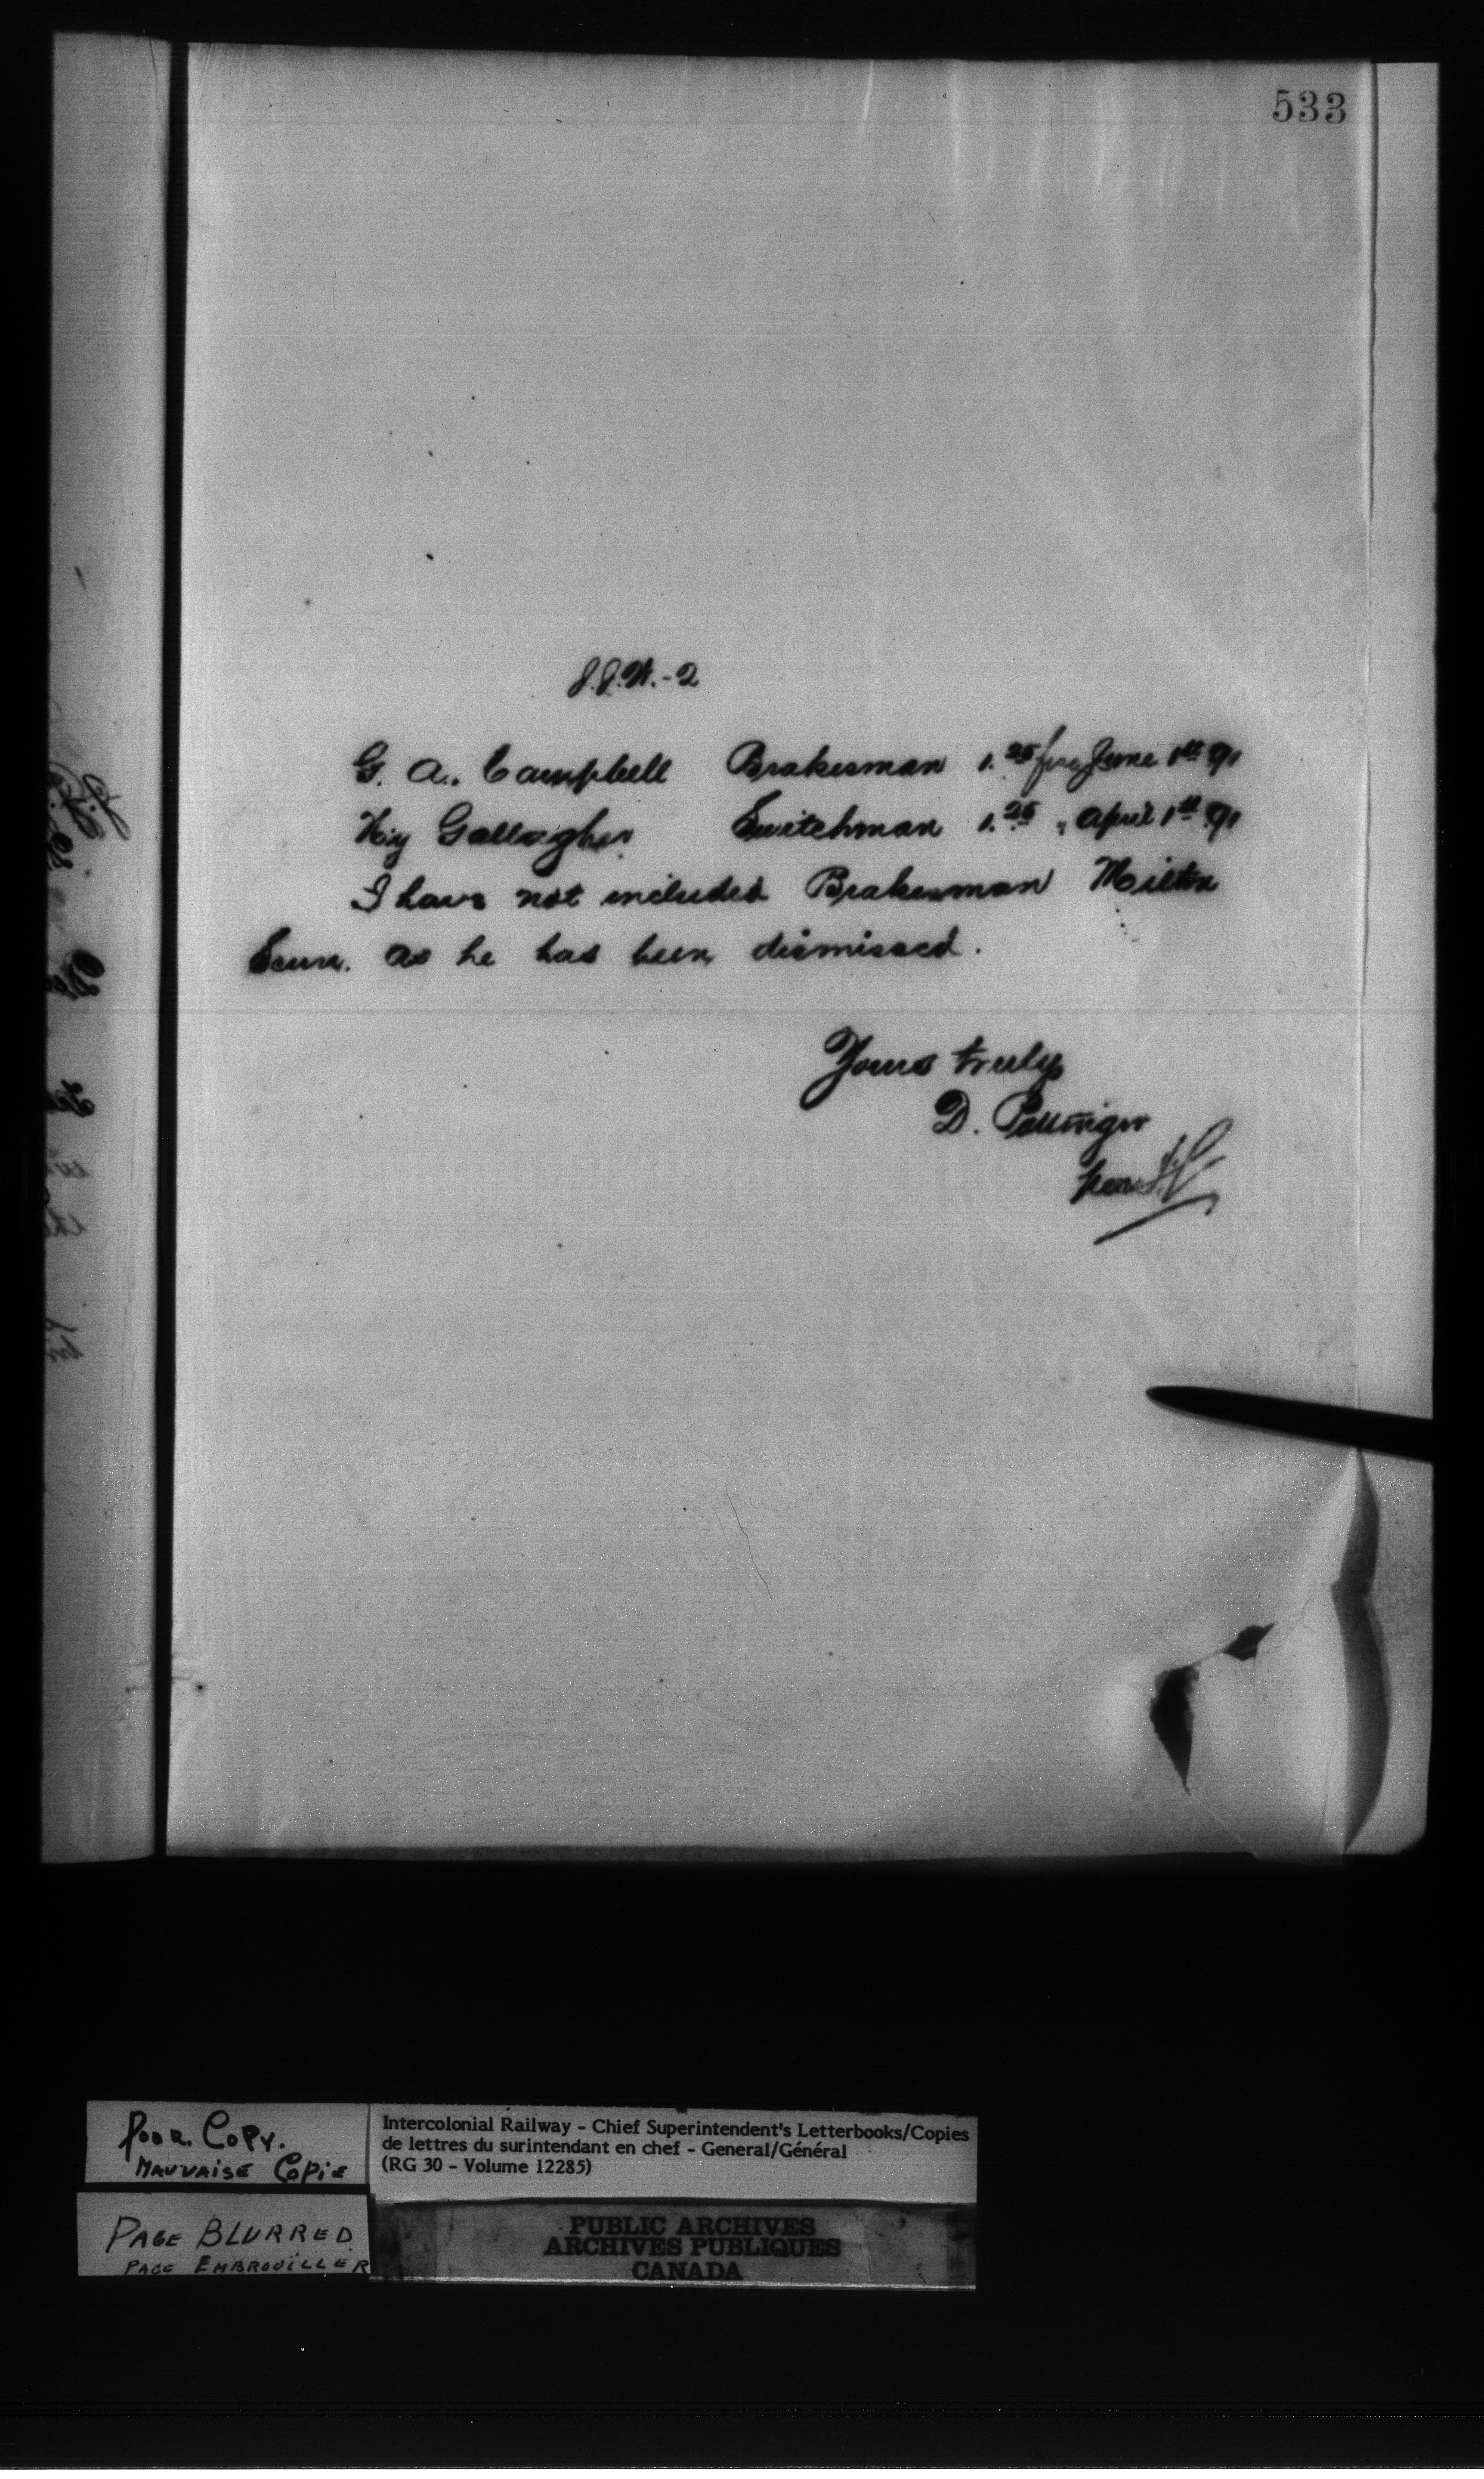 533
J.J.W.-2
G. A. Campbell Brakesman 1.25 from June 1st 91
Hy Gallagher Switchman 1.25 " April 1st 91
I have not included Brakesman Milton
as he has been dismissed.
Yours truly
D. Pottinger
per
Poor. Copy.
Mauvaise Copie
Intercolonial Railway - Chief Superintendent's Letterbooks/Copies
de lettres du surintendant en chef - General/Général
(RG 30 - Volume 12285)
PAGE BLURRED
PAGE EMBROUILLER
PUBLIC ARCHIVES
ARCHIVES PUBLIQUES
CANADA